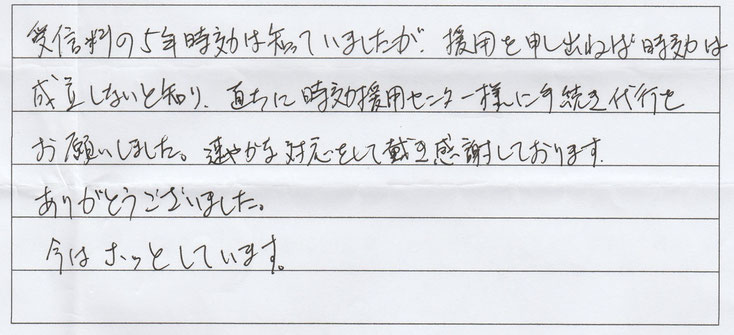 受信料の5年時効は知っていましたが、援用を申し出ねば時効は
成立しないと知り、直ちに時効援用センター様に手続き代行を
お願いしました。速やかな対応をして戴き感謝しております。
ありがとうございました。
今はホッとしています。